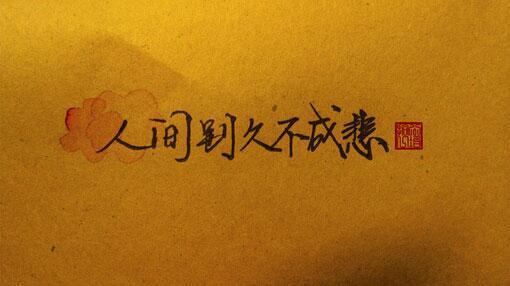 人间别久不成悲